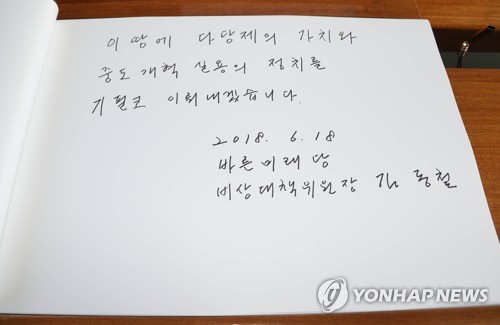 이 땅에 다당제의 가치와
중도 개혁 실용의 정치를
기필코 이뤄내겠습니다.
2018. 6. 18
바른미래당
비상대책위원장 김동철
YONHAP NEWS